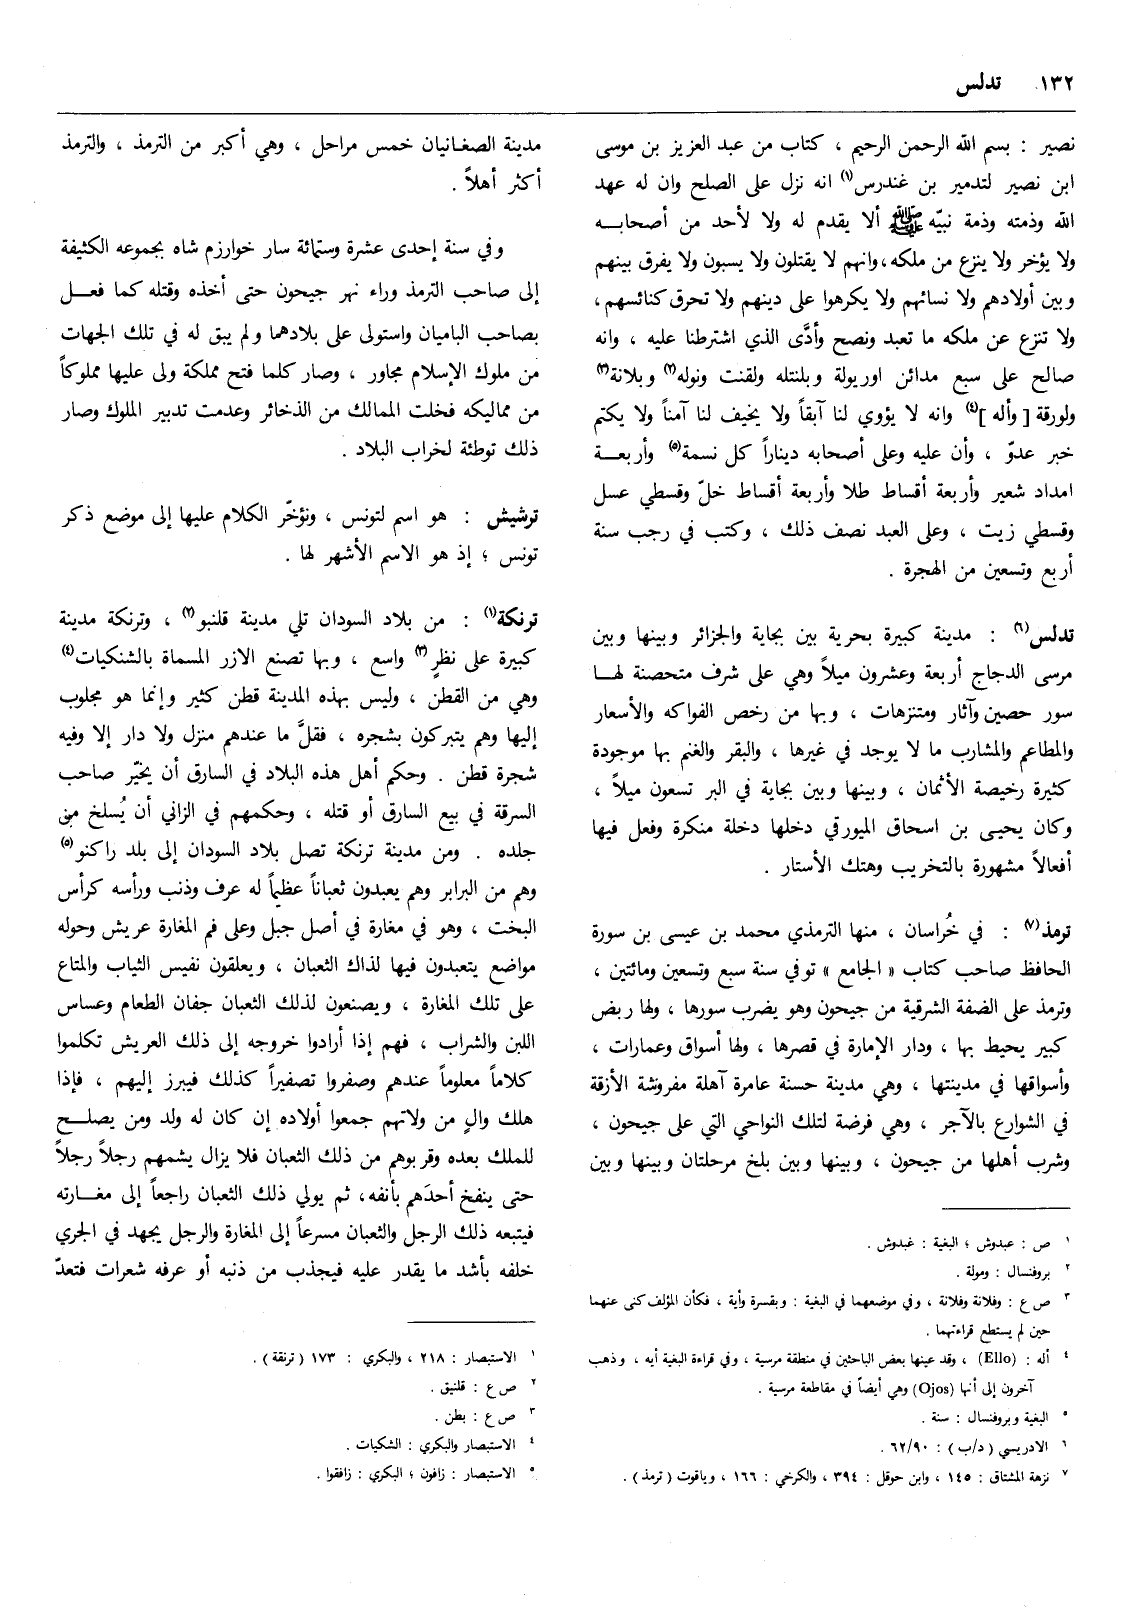 ١٣٢ تدلس
نصير : بسم الله الرحمن الرحيم ، كتاب من عبد العزيز بن موسى
ابن نصير لتدمير بن غندرس(١) انه نزل على الصلح وان له عهد
الله وذمته وذمة نبيّه ﷺ ألا يقدم له ولا لأحد من أصحابه
ولا يؤخر ولا ينزع من ملكه، وانهم لا يقتلون ولا يسبون ولا يفرق بينهم
وبين أولادهم ولا نسائهم ولا يكرهوا على دينهم ولا تحرق كنائسهم ،
ولا تنزع عن ملكه ما تعبد ونصح وأدَّى الذي اشترطنا عليه ، وانه
صالح على سبع مدائن اوريولة وبلنتله ولقنت ونوله(٢) وبلانة(٣)
ولورقة [ وأله ](٤) وانه لا يؤوي لنا آبقاً ولا يخيف لنا آمناً ولا يكتم
خبر عدوّ ، وأن عليه وعلى أصحابه ديناراً كل نسمة(٥) وأربعة
امداد شعير وأربعة أقساط طلا وأربعة أقساط خلّ وقسطي عسل
وقسطي زيت ، وعلى العبد نصف ذلك ، وكتب في رجب سنة
أربع وتسعين من الهجرة .
تدلس(٦) : مدينة كبيرة بحرية بين بجاية والجزائر وبينها وبين
مرسى الدجاج أربعة وعشرون ميلاً وهي على شرف متحصنة لها
سور حصين وآثار ومتنزهات ، وبها من رخص الفواكه والأسعار
والمطاعم والمشارب ما لا يوجد في غيرها ، والبقر والغنم بها موجودة
كثيرة رخيصة الأثمان ، وبينها وبين بجاية في البر تسعون ميلاً ،
وكان يحيى بن اسحاق الميورقي دخلها دخلة منكرة وفعل فيها
أفعالاً مشهورة بالتخريب وهتك الأستار .
ترمذ(٧) : في خُراسان ، منها الترمذي محمد بن عيسى بن سورة
الحافظ صاحب كتاب « الجامع » توفي سنة سبع وتسعين ومائتين ،
وترمذ على الضفة الشرقية من جيحون وهو يضرب سورها ، ولها ربض
كبير يحيط بها ، ودار الإمارة في قصرها ، ولها أسواق وعمارات ،
وأسواقها في مدينتها ، وهي مدينة حسنة عامرة آهلة مفروشة الأزقة
في الشوارع بالآجر ، وهي فرضة لتلك النواحي التي على جيحون ،
وشرب أهلها من جيحون ، وبينها وبين بلخ مرحلتان وبينها وبين
١ ص : عبدوش ؛ البغية : غبدوش .
٢ بروفنسال : ومولة .
٣ ص ع : وفلانة وفلانة ، وفي موضعهما في البغية : وبقسرة وأية ، فكأن المؤلف كنى عنهما
حين لم يستطع قراءتهما .
٤ أله : (Ello) ، وقد عينها بعض الباحثين في منطقة مرسية ، وفي قراءة البغية أيه ، وذهب
آخرون إلى أنها (Ojos) وهي أيضاً في مقاطعة مرسية .
٥ البغية وبروفنسال : سنة .
٦ الادريسي ( د/ب ) : ٦٢/٩٠ .
٧ نزهة المشتاق : ١٤٥ ، وابن حوقل : ٣٩٤ ، والكرخي : ١٦٦ ، وياقوت ( ترمذ ) .
مدينة الصغانيان خمس مراحل ، وهي أكبر من الترمذ ، والترمذ
أكثر أهلاً .
وفي سنة إحدى عشرة وستمائة سار خوارزم شاه بجموعه الكثيفة
إلى صاحب الترمذ وراء نهر جيحون حتى أخذه وقتله كما فعل
بصاحب الباميان واستولى على بلادهما ولم يبق له في تلك الجهات
من ملوك الإسلام مجاور ، وصار كلما فتح مملكة ولى عليها مملوكاً
من مماليكه فخلت الممالك من الذخائر وعدمت تدبير الملوك وصار
ذلك توطئة لخراب البلاد .
ترشيش : هو اسم لتونس ، ونؤخّر الكلام عليها إلى موضع ذكر
تونس ؛ إذ هو الاسم الأشهر لها .
ترنكة(١) : من بلاد السودان تلي مدينة قلنبو(٢) ، وترنكة مدينة
كبيرة على نظرٍ(٣) واسع ، وبها تصنع الازر المسماة بالشنكيات(٤)
وهي من القطن ، وليس بهذه المدينة قطن كثير وإنما هو مجلوب
إليها وهم يتبركون بشجره ، فقلَّ ما عندهم منزل ولا دار إلا وفيه
شجرة قطن . وحكم أهل هذه البلاد في السارق أن يخيّر صاحب
السرقة في بيع السارق أو قتله ، وحكمهم في الزاني أن يُسلخ من
جلده . ومن مدينة ترنكة تصل بلاد السودان إلى بلد راكنو(٥)
وهم من البرابر وهم يعبدون ثعباناً عظيماً له عرف وذنب ورأسه كرأس
البخت ، وهو في مغارة في أصل جبل وعلى فم المغارة عريش وحوله
مواضع يتعبدون فيها لذاك الثعبان ، ويعلقون نفيس الثياب والمتاع
على تلك المغارة ، ويصنعون لذلك الثعبان جفان الطعام وعساس
اللبن والشراب ، فهم إذا أرادوا خروجه إلى ذلك العريش تكلموا
كلاماً معلوماً عندهم وصفروا تصفيراً كذلك فيبرز إليهم ، فإذا
هلك والٍ من ولاتهم جمعوا أولاده إن كان له ولد ومن يصلح
للملك بعده وقربوهم من ذلك الثعبان فلا يزال يشمهم رجلاً رجلاً
حتى ينفخ أحدَهم بأنفه، ثم يولي ذلك الثعبان راجعاً إلى مغارته
فيتبعه ذلك الرجل والثعبان مسرعاً إلى المغارة والرجل يجهد في الجري
خلفه بأشد ما يقدر عليه فيجذب من ذنبه أو عرفه شعرات فتعدّ
١ الاستبصار : ٢١٨ ، والبكري : ١٧٣ ( ترنقة ) .
٢ ص ع : قلنيق .
٣ ص ع : بطن .
٤ الاستبصار والبكري : الشكيات .
٥ الاستبصار : زافون ؛ البكري : زافقوا .